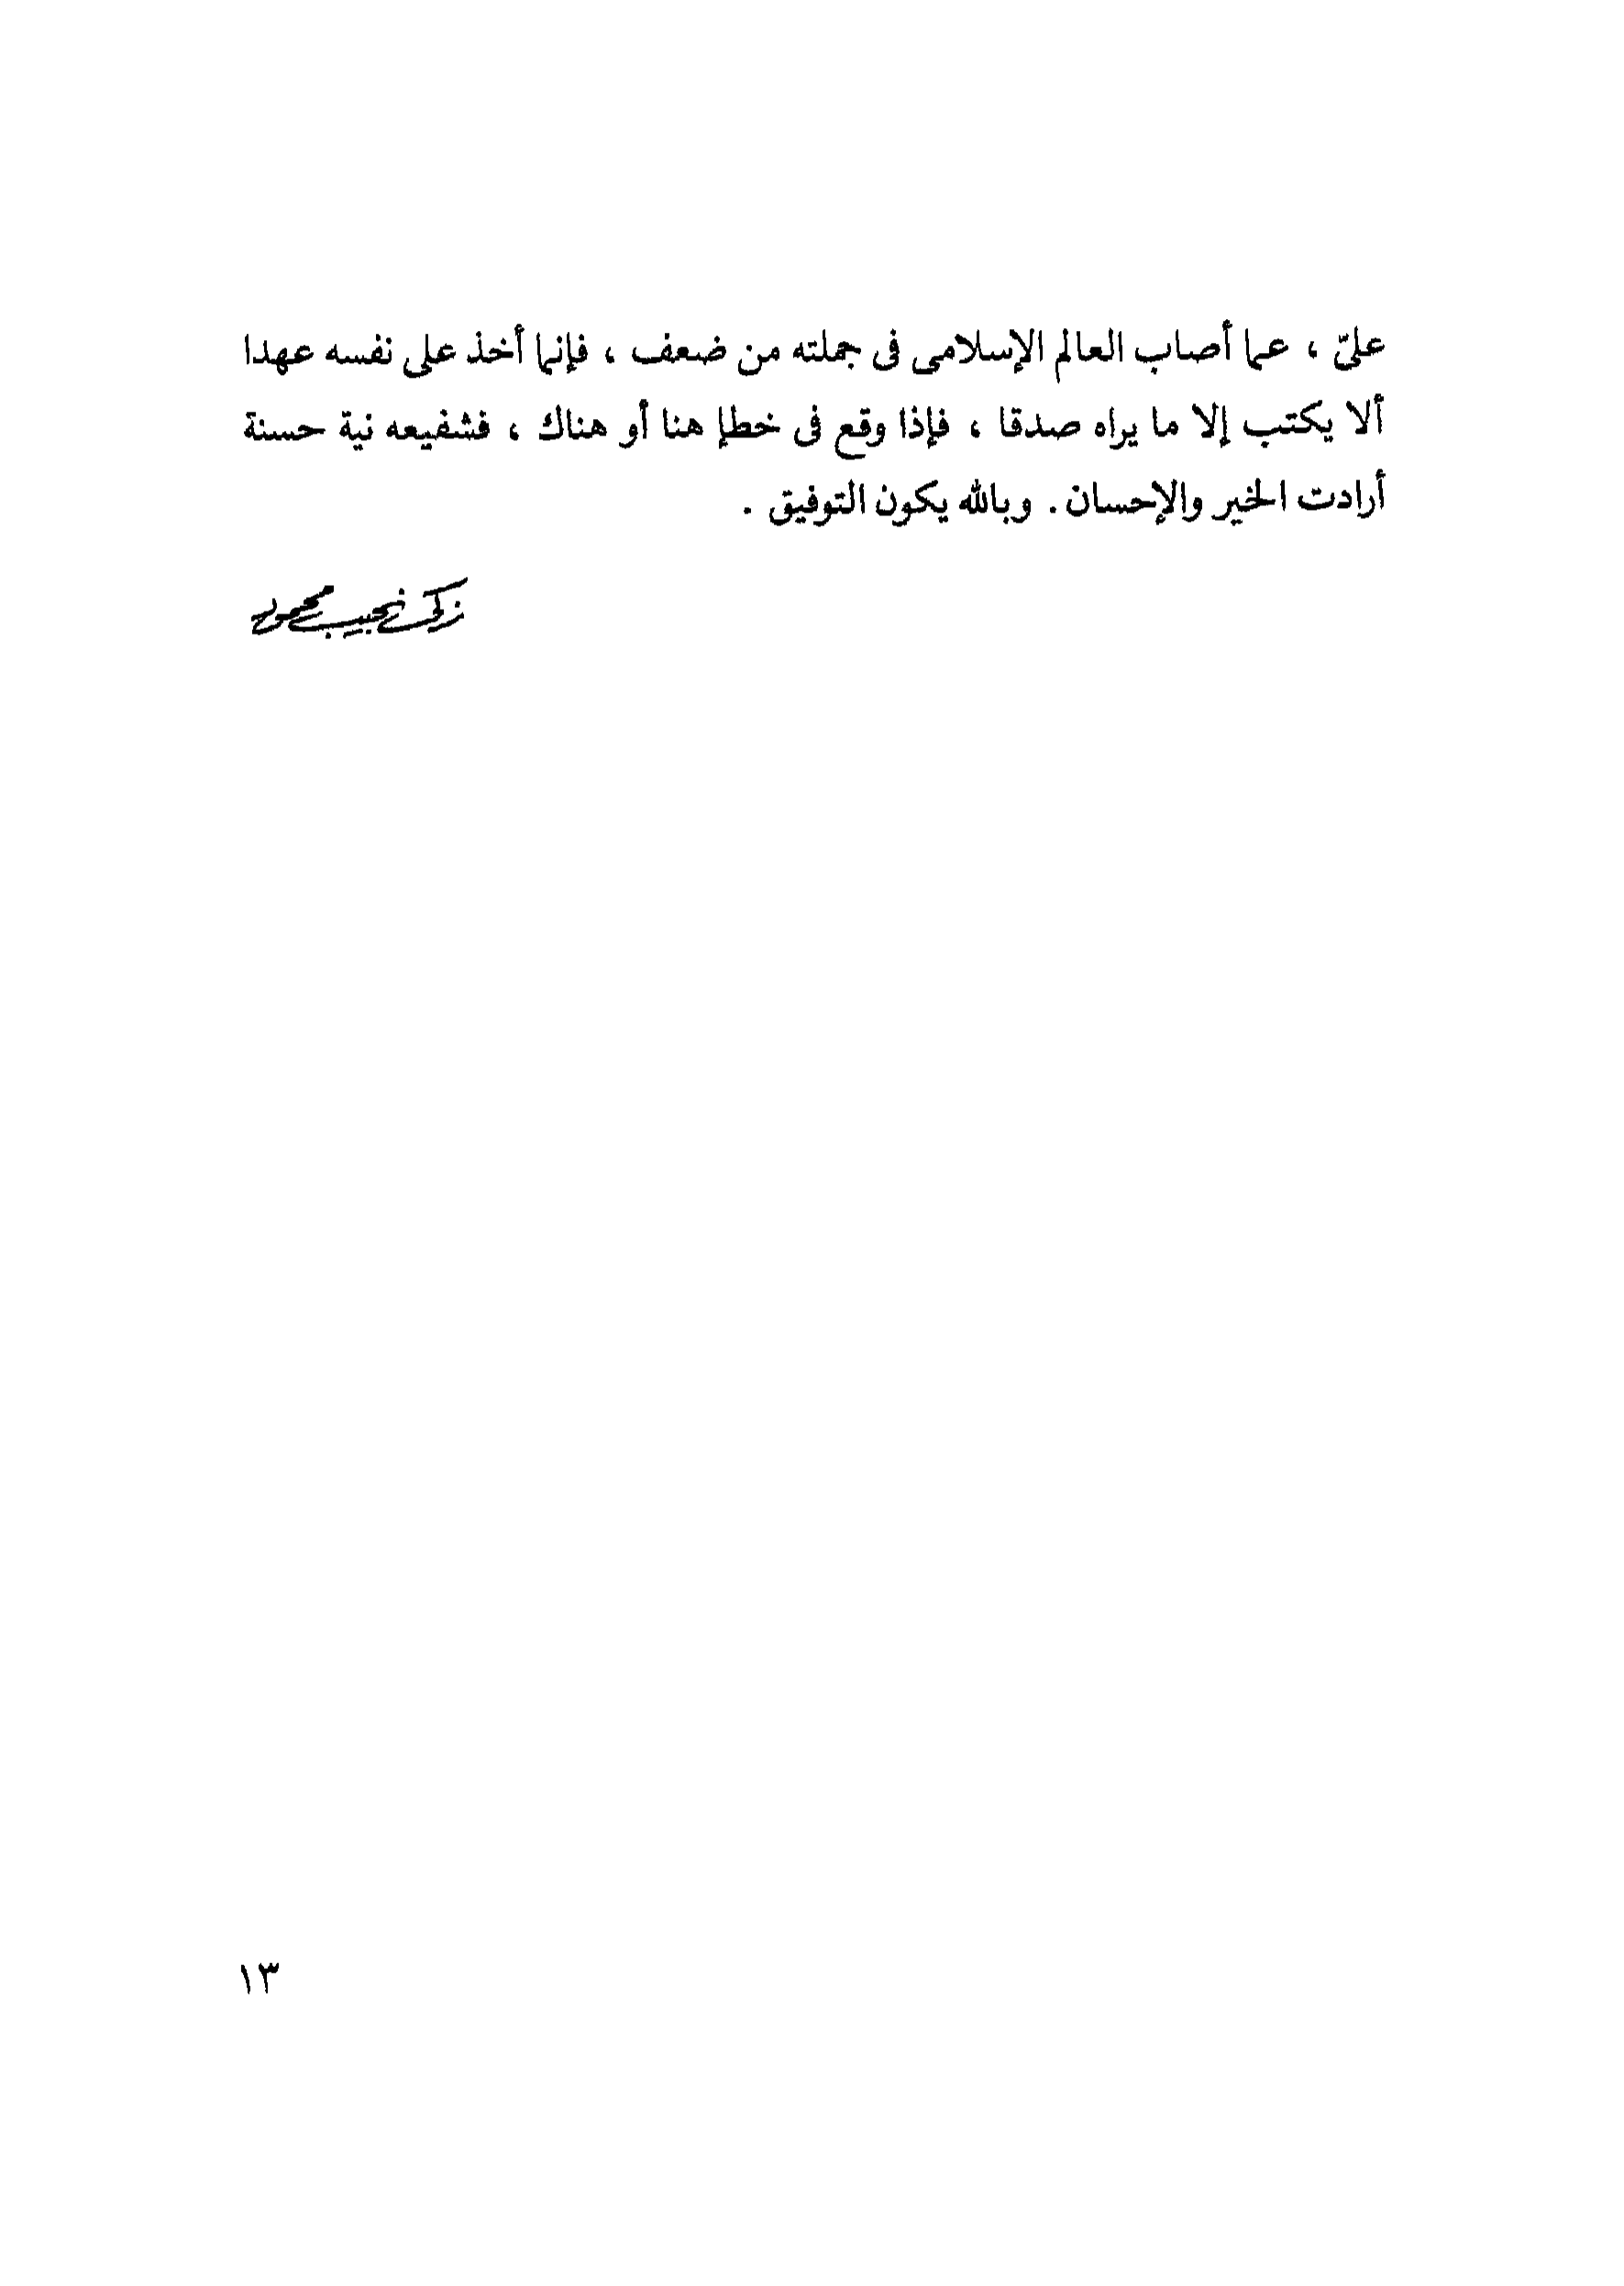 علىّ ، عما أصاب العالم الإسلامى فى جملته من ضعف ، فإنما أخذ على نفسه عهدا
ألا يكتب إلا ما يراه صدقا ، فإذا وقع فى خطإ هنا أو هناك ، فشفيعه نية حسنة
أرادت الخير والإحسان . وبالله يكون التوفيق .
زكى نجيب محمود
١٣